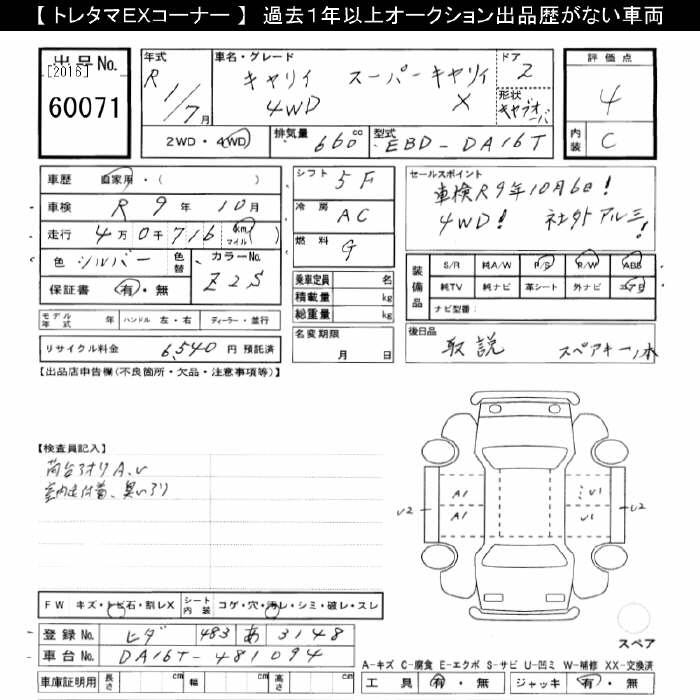 【 トレタマEXコーナー 】 過去1年以上オークション出品歴がない車両
出品No.
[2016]
60071
年式
R 1/7月
車名・グレード
キャリイ スーパーキャリイ
4WD X
ドア
2
形状
評価点
4
内装
C
2WD・4WD
排気量 660 cc
型式 EBD-DA16T
車歴 自家用・( )
車検 R 9年 10月
走行 4万0千716 (km マイル)
色 シルバー 色替
カラーNo. Z2S
保証書 有・無
シフト 5F
冷房 AC
燃料 G
乗車定員 名
積載量 kg
総重量 kg
セールスポイント
車検R9年10月6日!
4WD! 社外アルミ!
装備品
S/R 純A/W P/S P/W ABS
純TV 純ナビ 革シート 外ナビ エアB
ナビ型番:
モデル年式 年 ハンドル 左・右 ディーラー・並行
リサイクル料金 6,540 円 預託済
名変期限 月 日
後日品
取説 スペアキー1本
【出品店申告欄(不良箇所・欠品・注意事項等)】
【検査員記入】
荷台アオリA、U
A1 A1
U1 U1
U2 U2
FW キズ・トビ石・割レX
シート内装 コゲ・穴・汚レ・シミ・破レ・スレ
登録No. ヒダ 483 あ 3148
車台No. DA16T-481094
車庫証明用 長さ cm 幅 cm 高さ cm
スペア
A-キズ C-腐食 E-エクボ S-サビ U-凹ミ W-補修 XX-交換済
工具 有・無 ジャッキ 有・無